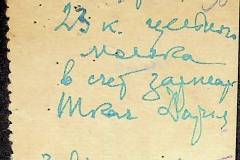 23 к. цельного
молока
в счет зарплат
Ткач Дария